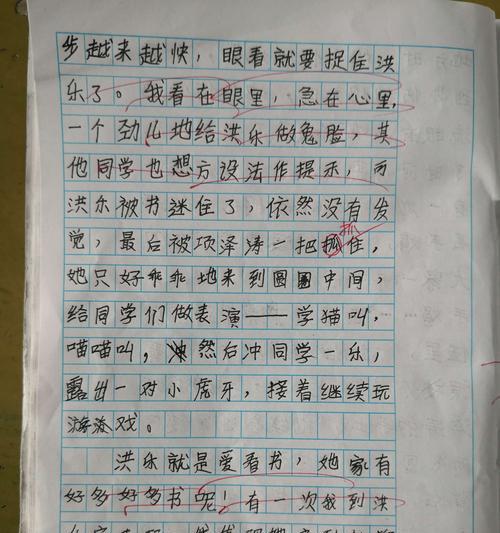 步越来越快，眼看就要捉住洪
乐了。我看在眼里，急在心里，
一个劲儿地给洪乐做鬼脸，其
他同学也想方设法作提示，可
洪乐被书迷住了，依然没有发
抓
觉，最后被项泽涛一把抓住，
她只好乖乖地来到圆圈中间，
给同学们做表演——学猫叫，
喵喵叫，然后冲同学一乐，
露出一对小虎牙，接着继续玩
游戏。
洪乐就是爱看书，她家有
好多好多书呢！有一次我到洪